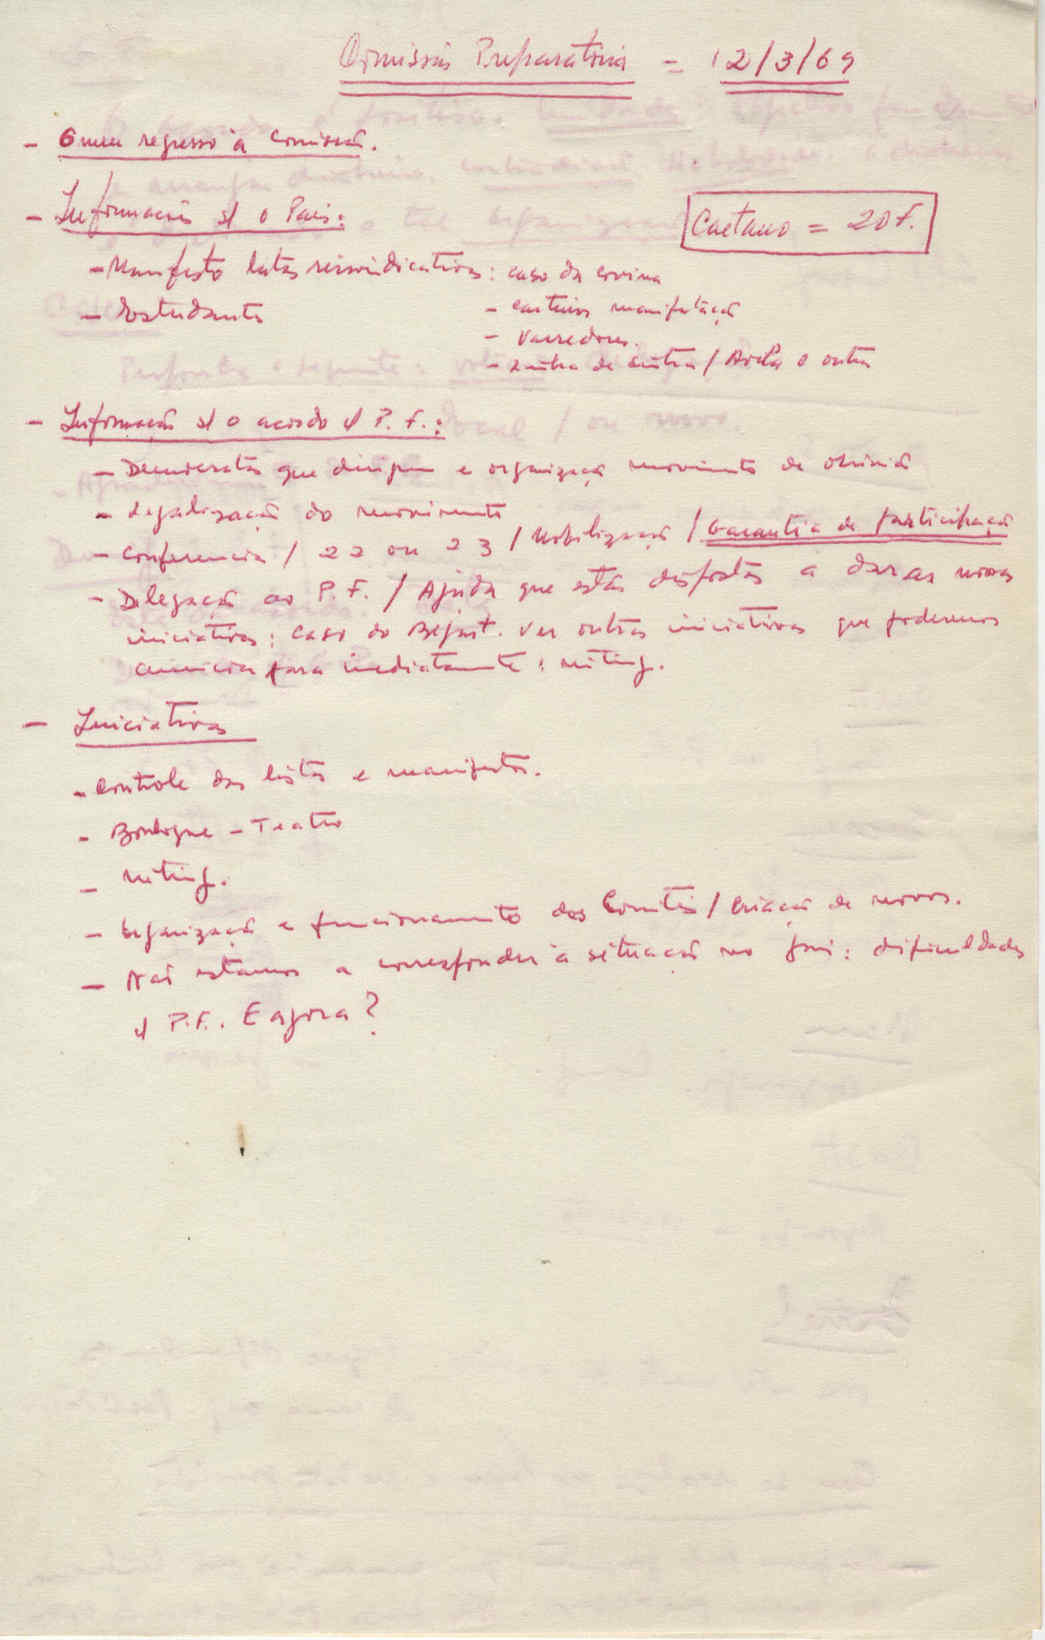 Comissão Preparatória = 12/3/69
- O meu regresso à Comissão.
- Informação s/ o País:
Caetano = 20 F.
- Manifesto lutas reivindicativas: caso da covina
- Estudantes
- carteiros manifestação
- varredores
- Linha de Sintra / e outras
- Informação s/ o acordo c/ P. F.:
- Democratas que dirigem e organização movimento de
- Legalização do movimento
- Conferencia / 22 ou 23 / Mobilização / Garantia de participação
- Delegação ao P. F. / Ajuda que estão dispostos a dar às novas
iniciativas: caso do . Ver outras iniciativas que podemos
para imediatamente: miting.
- Iniciativas
- Controle das listas e manifestos.
- Boulogne - Teatro
- Miting.
- Organização e funcionamento dos Comités / Criação de novos.
- Não estamos a corresponder à situação no país: dificuldades
c/ P.F. E agora?